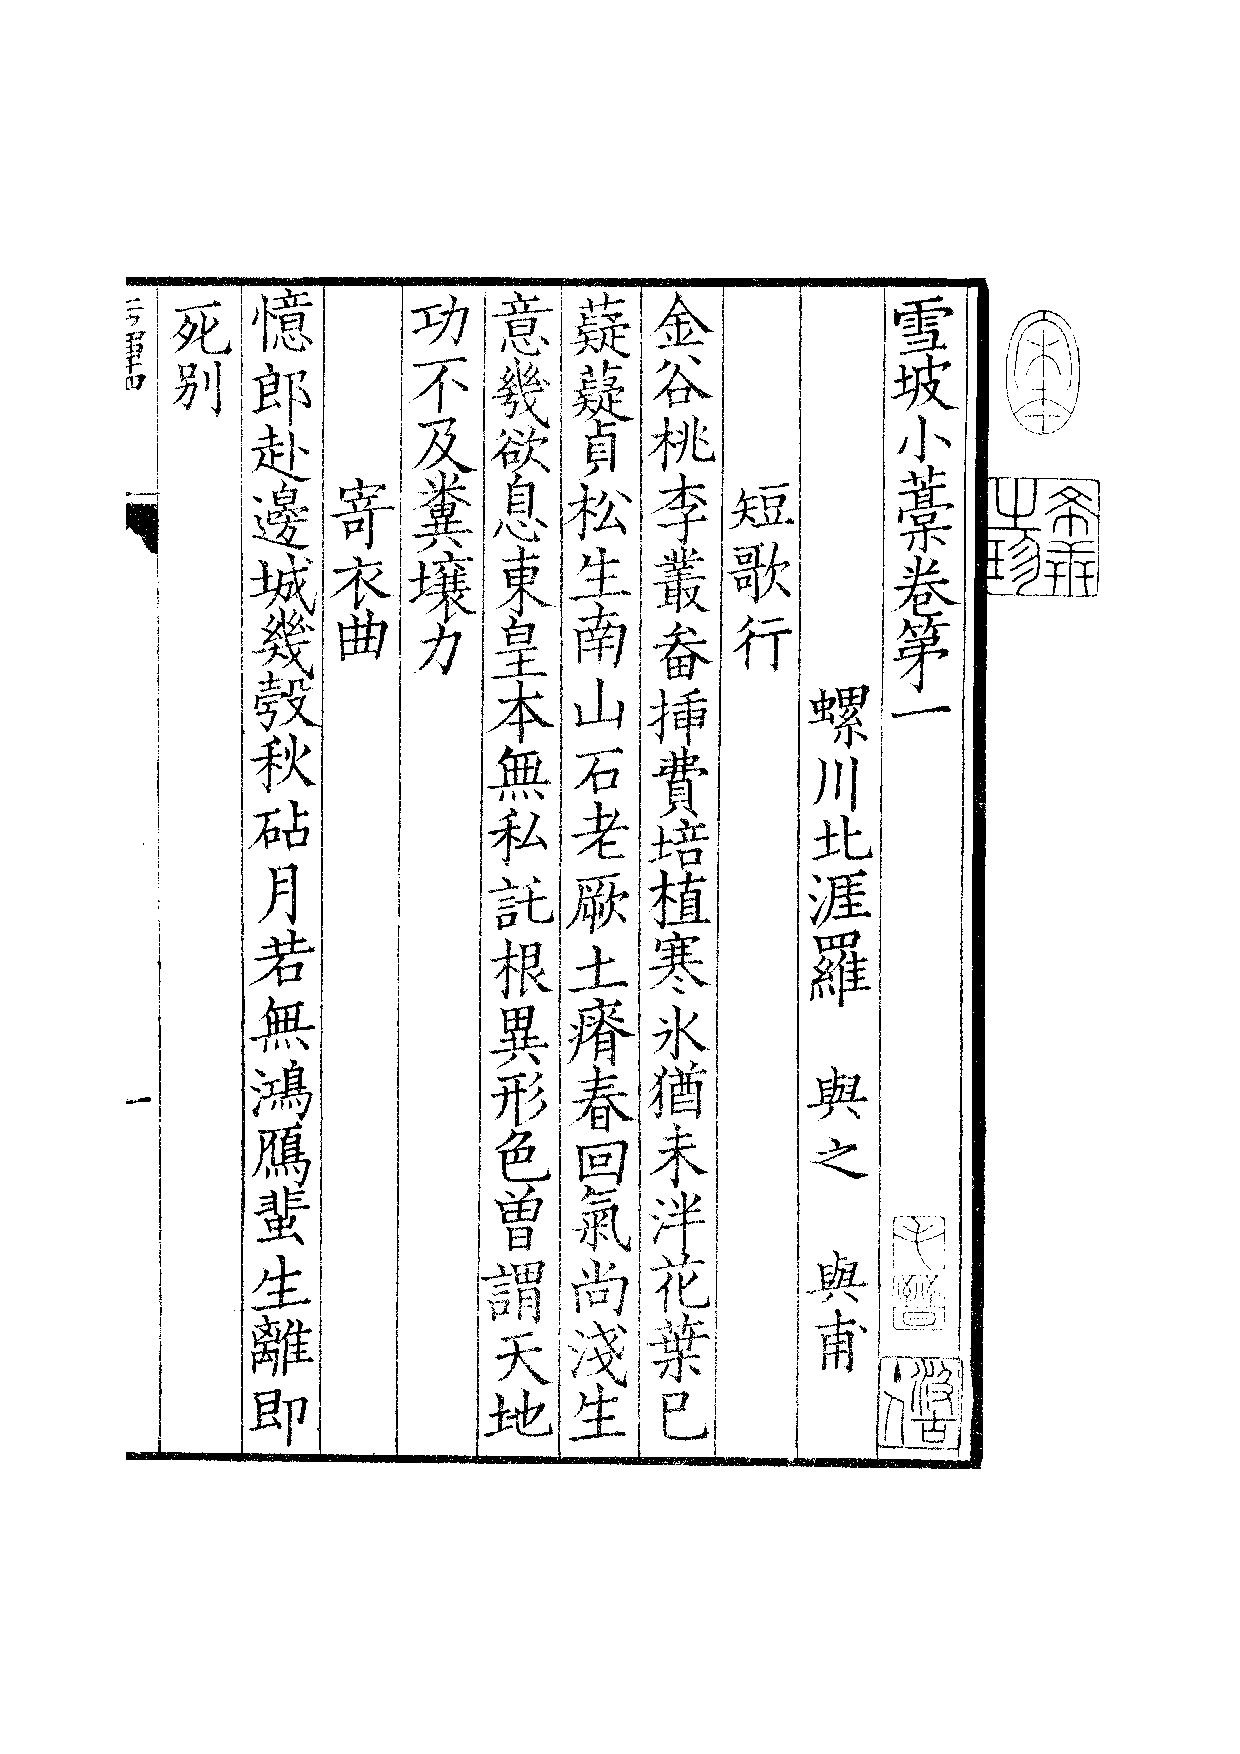 雪坡小藁卷第一
螺川北涯羅　與之　與甫
短歌行
金谷桃李叢畚揷費培植寒氷猶未泮花葉已
薿薿貞松生南山石老厥土瘠春回氣尚淺生
意幾欲息東皇本無私託根異形色曽謂天地
功不及糞壤力
寄衣曲
憶郎赴邊城幾彀秋砧月若無鴻鴈蜚生離即
死别
一